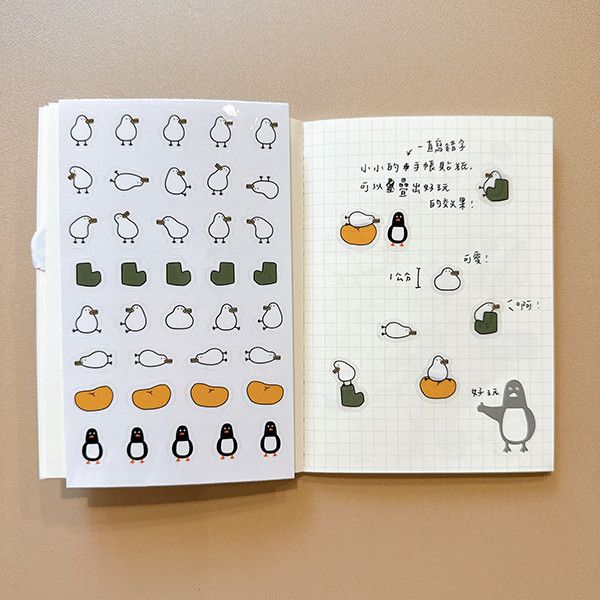 一直寫錯字
小小的手帳貼紙,
可以疊出好玩
的效果!
可愛!
1公分
啊!
好玩